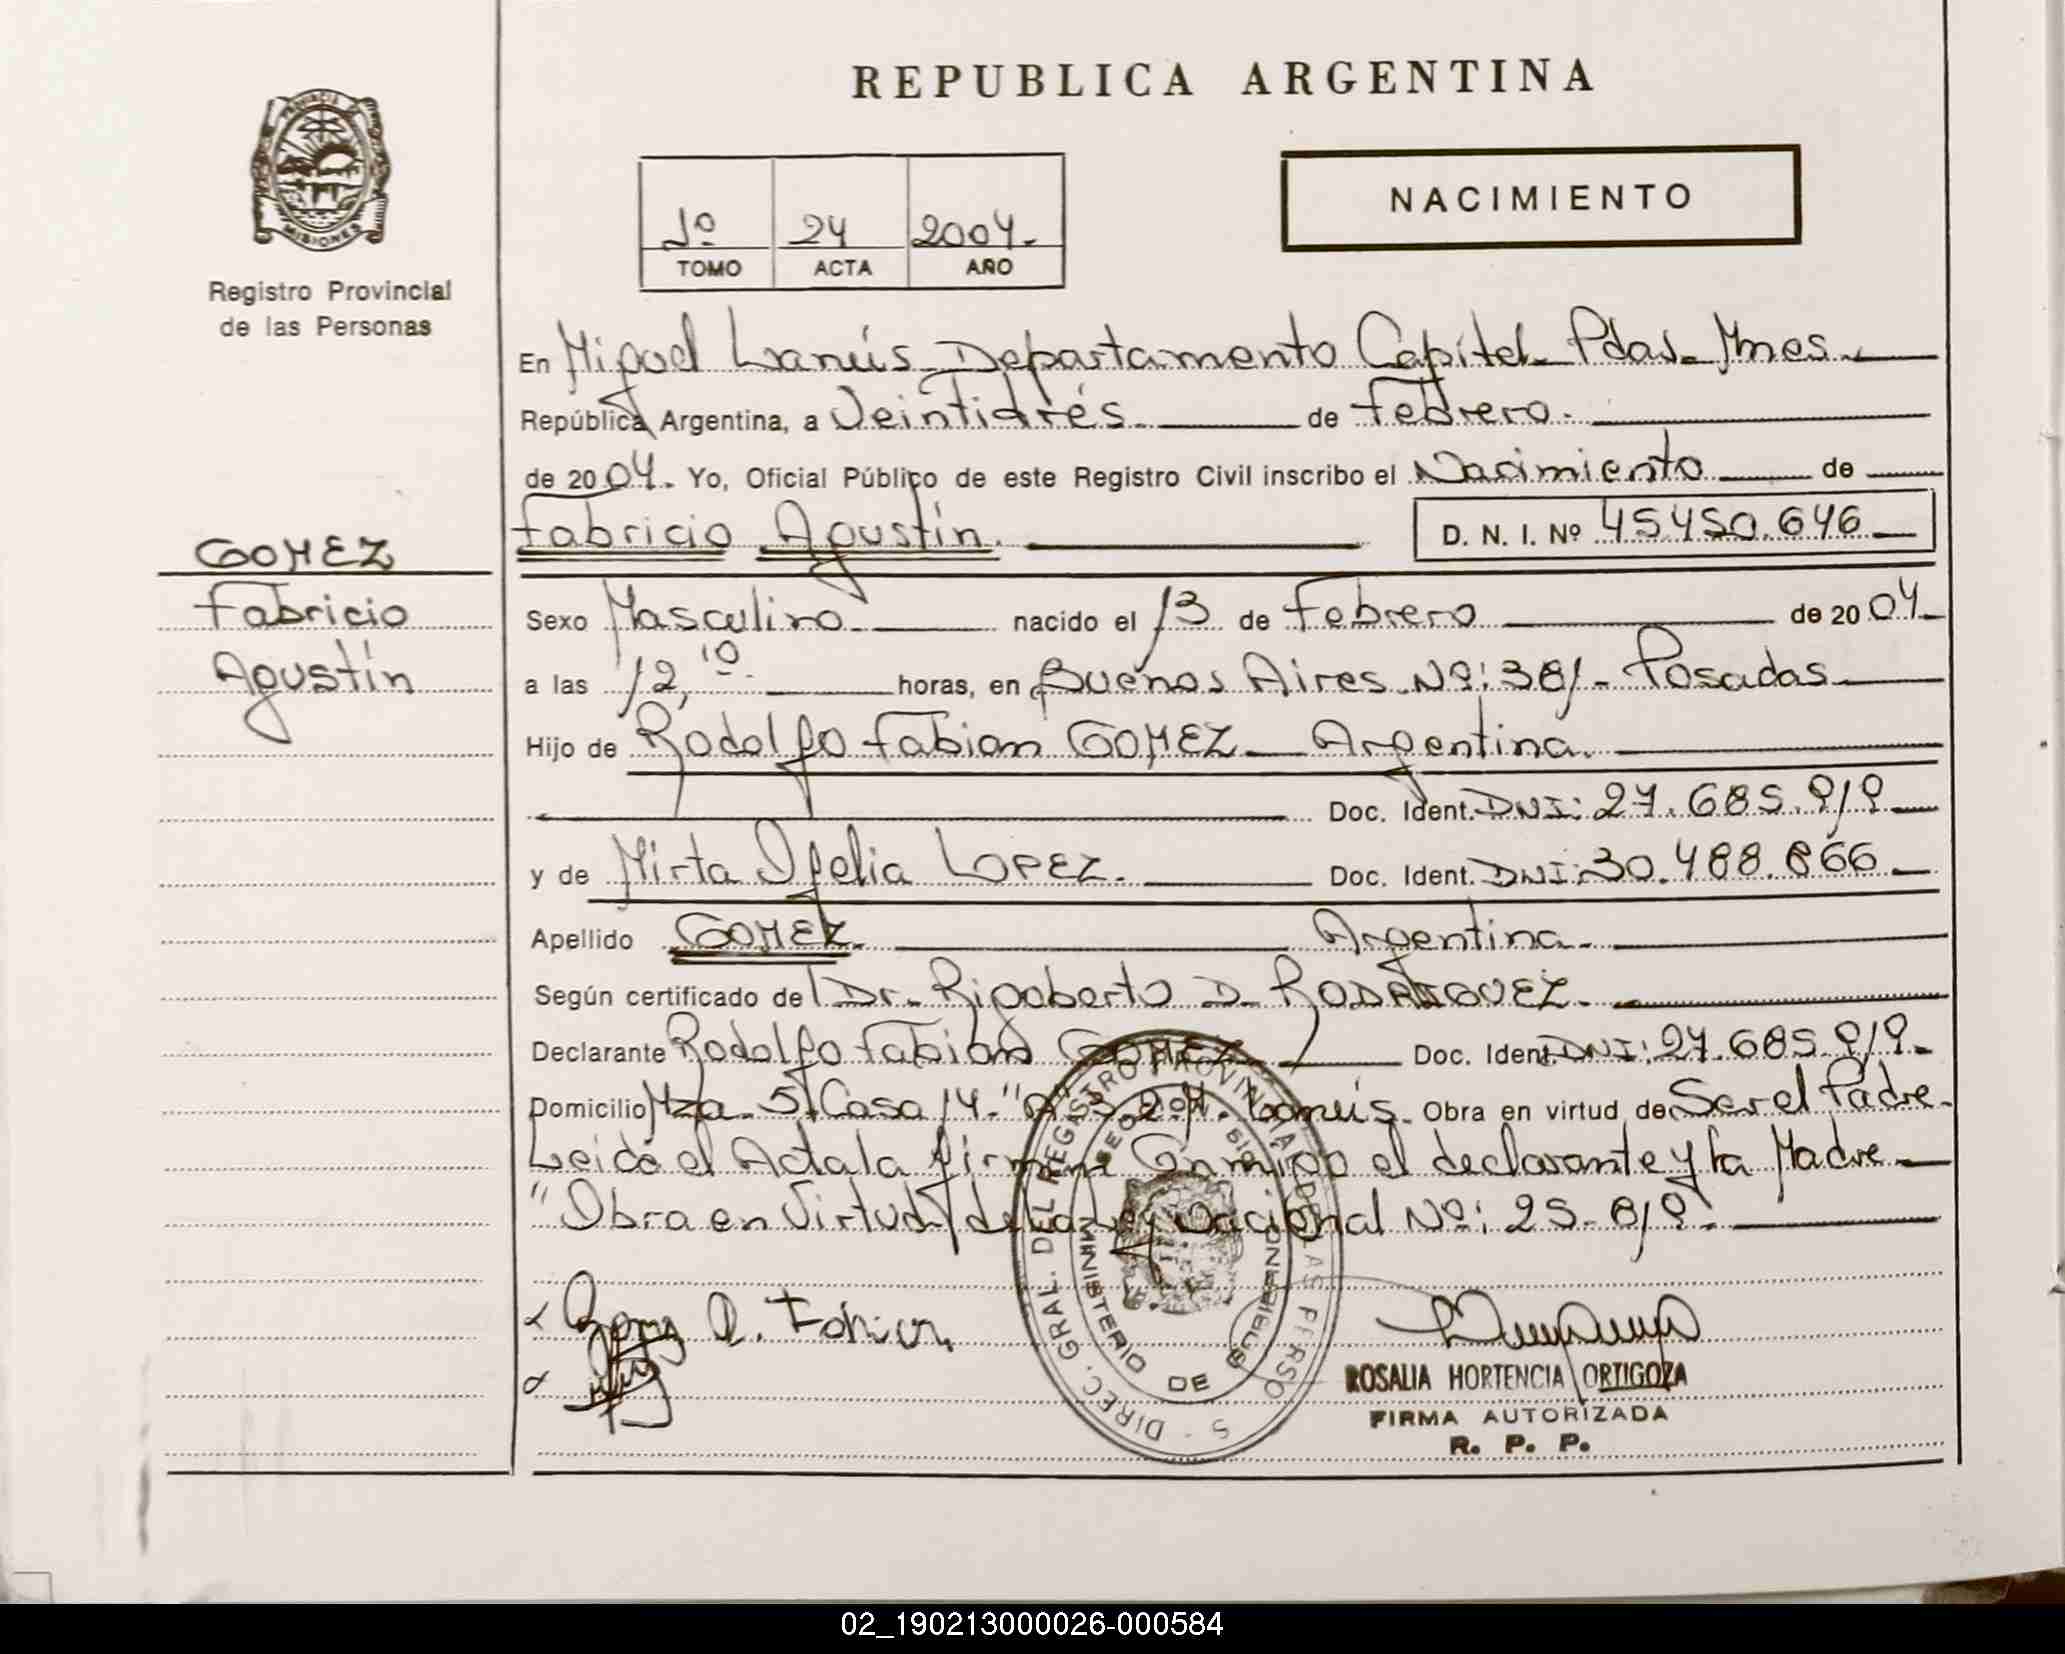 REPUBLICA ARGENTINA
NACIMIENTO
1º 24 2004.
TOMO ACTA AÑO
PROVINCIA DE
MISIONES
Registro Provincial
de las Personas
En Miguel Lanús Departamento Capital Pdas. Mnes.
República Argentina, a Veintidrés de Febrero.
de 2004. Yo, Oficial Público de este Registro Civil inscribo el Nacimiento de
Fabricio Agustín. D. N. I. Nº 45450.646
GOMEZ
Fabricio
Agustín
Sexo Masculino nacido el 13 de Febrero de 2004
a las 12,10 horas, en Buenos Aires Nº: 381 - Posadas
Hijo de Rodolfo Fabian GOMEZ Argentina.
Doc. Ident. DNI: 27.685.919
y de Mirta Ofelia LOPEZ. Doc. Ident. DNI: 30.488.866
Apellido GOMEZ. Argentina.
Según certificado de Dr. Rigoberto D. RODRIGUEZ.
Declarante Rodolfo Fabian GOMEZ Doc. Ident. DNI: 27.685.919.
Domicilio Mza. 5 Casa 14. Lanús. Obra en virtud de Ser el Padre.
Leida el Acta la firman Conmigo el declarante y la Madre
"Obra en Virtud de la Ley Nacional Nº: 25.819.
DIREC. GRAL. DEL REGISTRO PROVINCIAL DE LAS PERSONAS
MINISTERIO DE GOBIERNO
ROSALIA HORTENCIA ORTIGOZA
FIRMA AUTORIZADA
R. P. P.
02_190213000026-000584